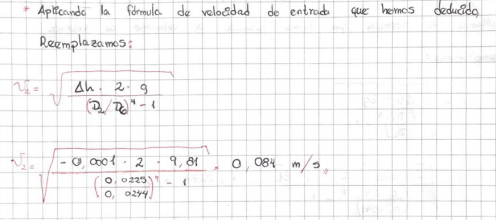 * Aplicando la fórmula de velocidad de entrada que hemos deducido
Reemplazamos:
V₂ = √(Δh · 2 · g / ((D₂/D₆)⁴ - 1))
V₂ = √(-0,0001 · 2 · 9,81 / ((0,0225 / 0,0244)⁴ - 1)) = 0,084 m/s,,